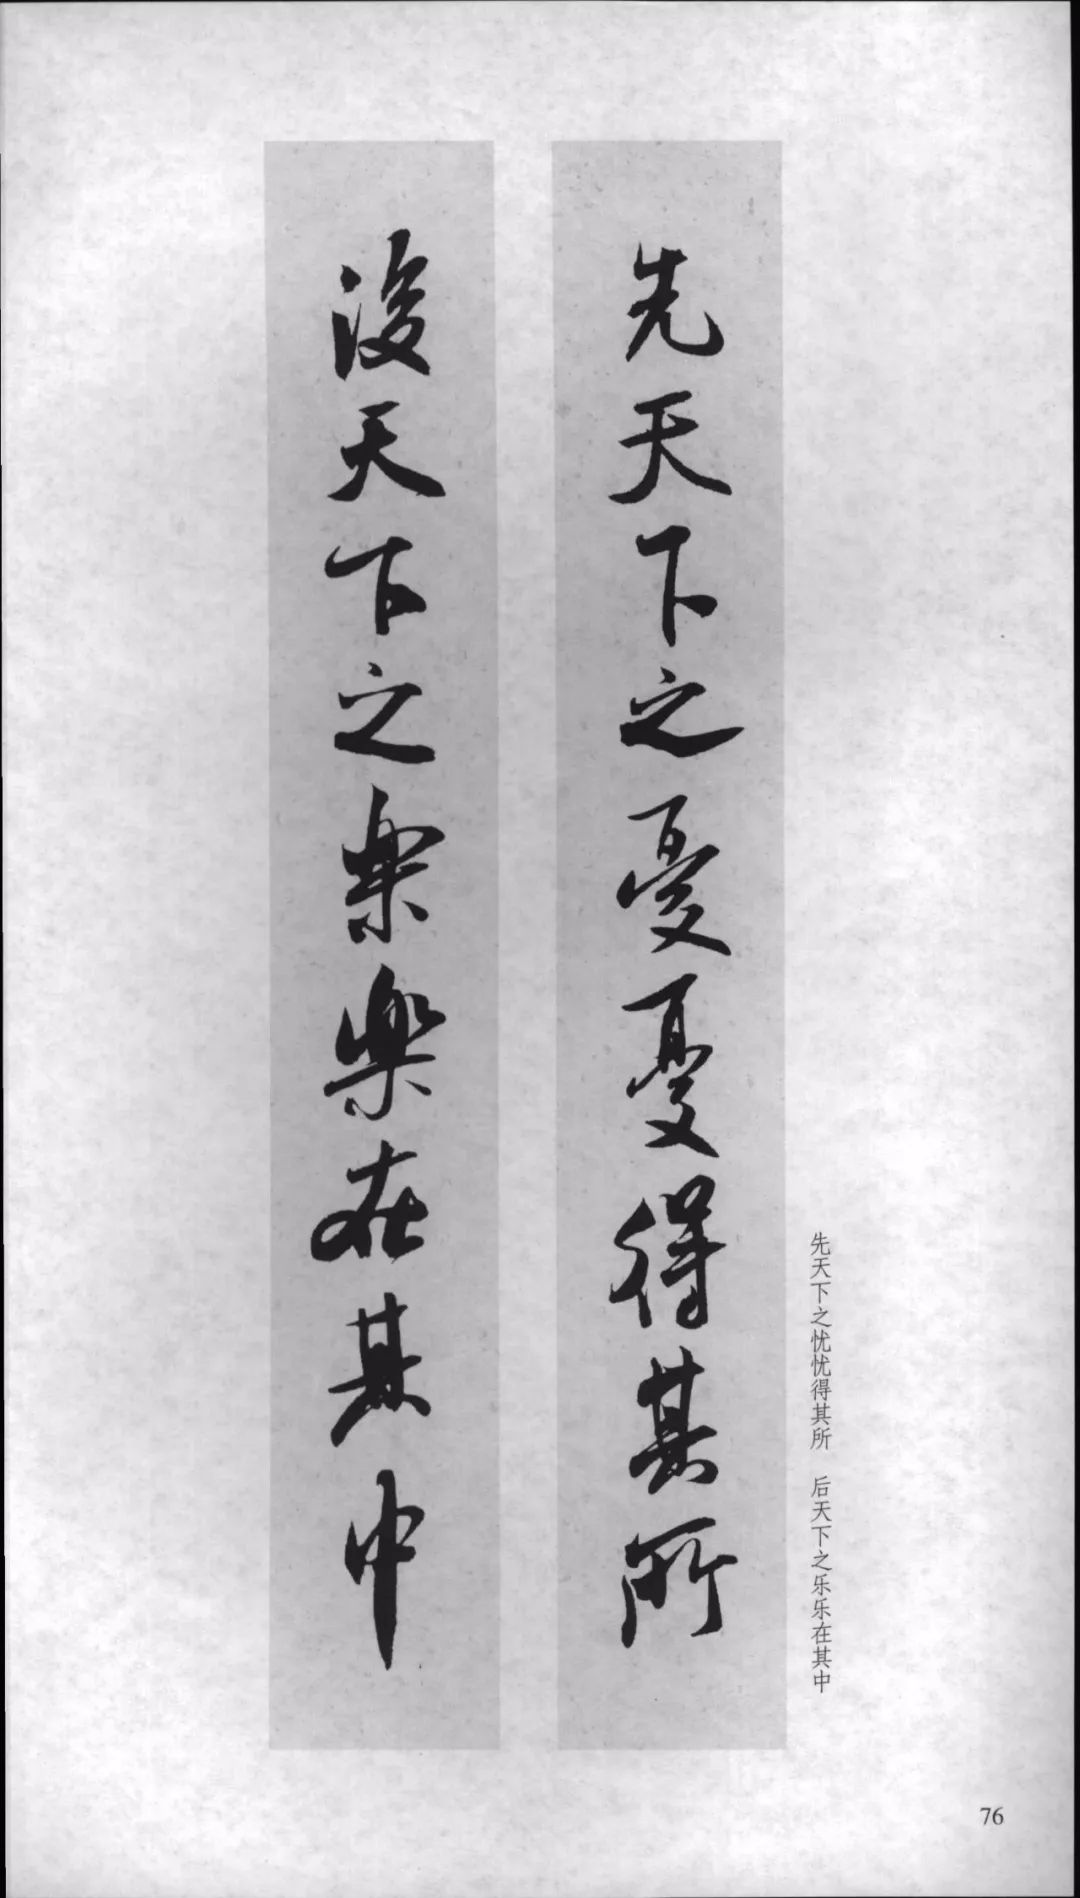 先天下之憂憂得其所
後天下之樂樂在其中
先天下之忧忧得其所 后天下之乐乐在其中
76